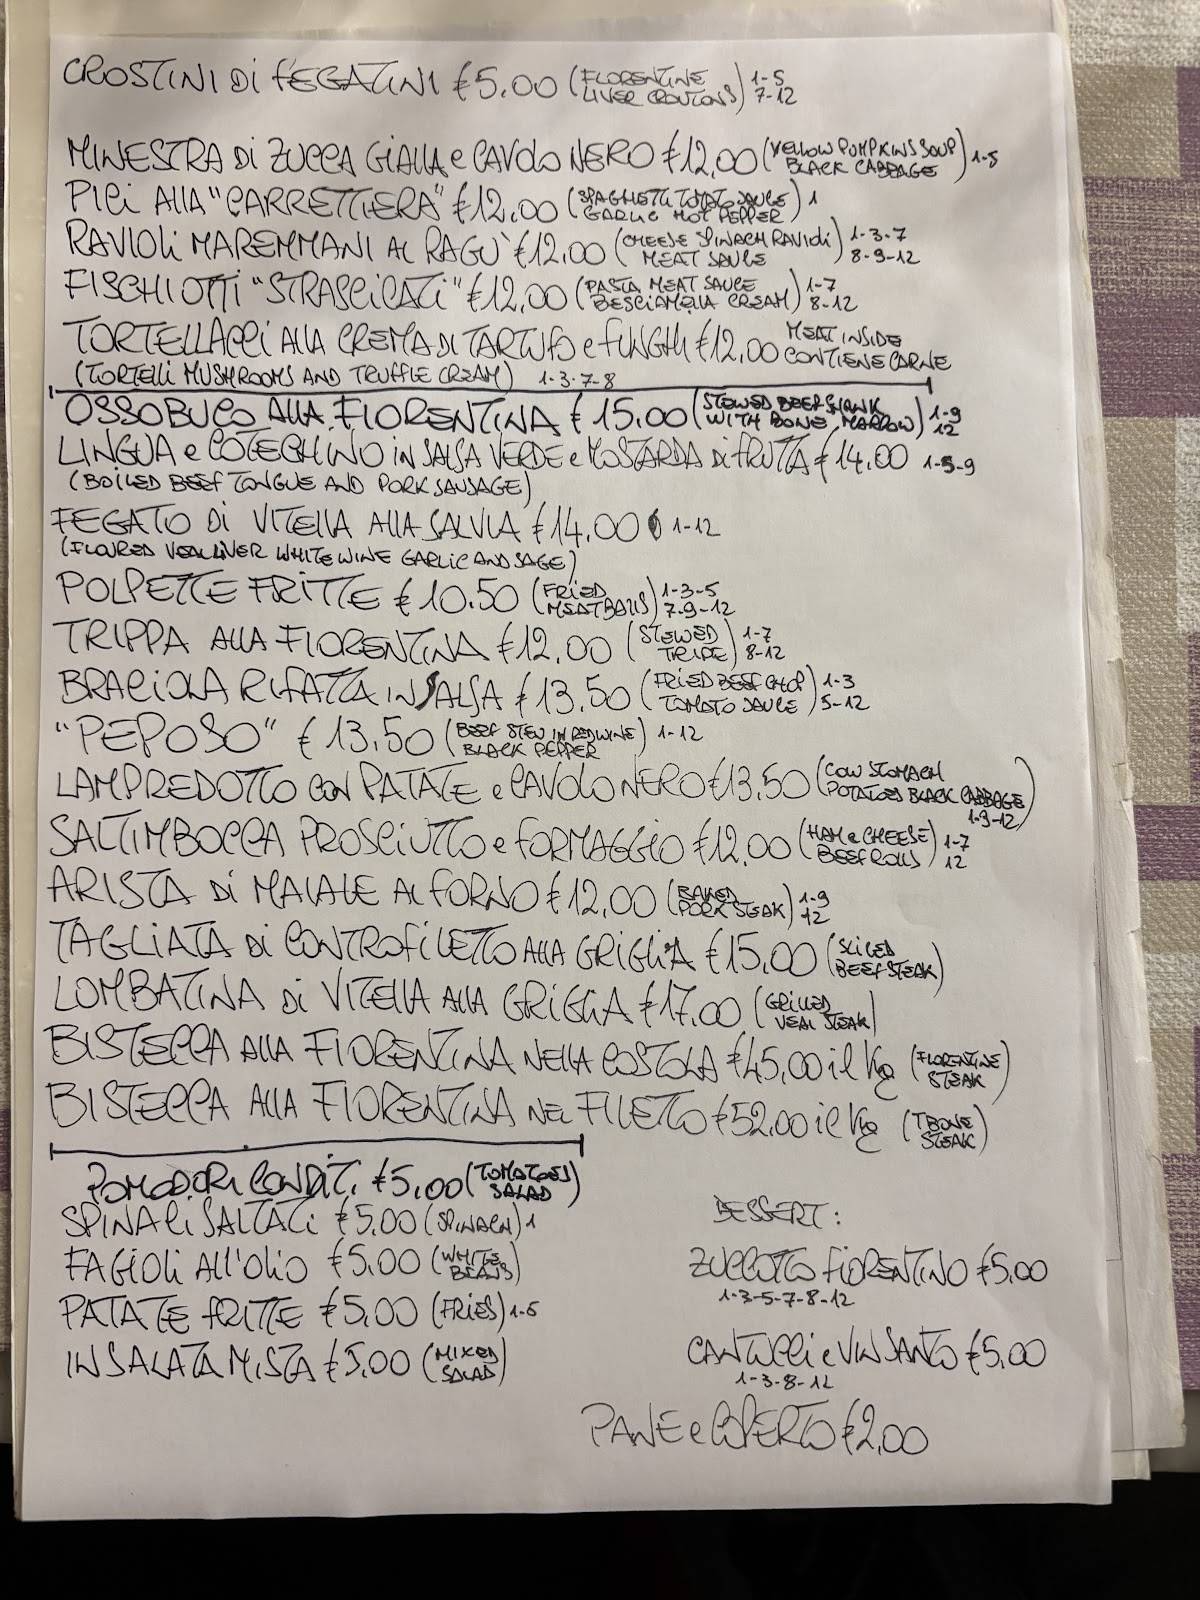 CROSTINI DI FEGATINI €5,00 (FLORENTINE LIVER CROUTONS) 1-5 7-12
MINESTRA DI ZUCCA GIALLA e CAVOLO NERO €12,00 (YELLOW PUMPKINS SOUP BLACK CABBAGE) 1-5
PICI ALLA "CARRETTIERA" €12,00 (SPAGHETTI TOMATO SAUCE GARLIC HOT PEPPER) 1
RAVIOLI MAREMMANI AL RAGU' €12,00 (CHEESE SPINACH RAVIOLI MEAT SAUCE) 1-3-7 8-9-12
FISCHIOTTI "STRASCICATI" €12,00 (PASTA MEAT SAUCE BESCIAMELLA CREAM) 1-7 8-12
TORTELLACCI ALLA CREMA DI TARTUFO e FUNGHI €12,00 MEAT INSIDE CONTIENE CARNE
(TORTELLI MUSHROOMS AND TRUFFLE CREAM) 1-3-7-8
OSSOBUCO ALLA FIORENTINA €15,00 (STEWED BEEF SHANK WITH BONE MARROW) 1-9 12
LINGUA e COTECHINO in SALSA VERDE e MOSTARDA DI FRUTTA €14,00 1-5-9
(BOILED BEEF TONGUE AND PORK SAUSAGE)
FEGATO DI VITELLA ALLA SALVIA €14,00 1-12
(FLOURED VEAL LIVER WHITE WINE GARLIC AND SAGE)
POLPETTE FRITTE €10,50 (FRIED MEATBALLS) 1-3-5 7-9-12
TRIPPA ALLA FIORENTINA €12,00 (STEWED TRIPE) 1-7 8-12
BRACIOLA RIFATTA IN SALSA €13,50 (FRIED BEEF CHOP TOMATO SAUCE) 1-3 5-12
"PEPOSO" €13,50 (BEEF STEW IN RED WINE BLACK PEPPER) 1-12
LAMPREDOTTO CON PATATE e CAVOLO NERO €13,50 (COW STOMACH POTATOES BLACK CABBAGE) 1-9-12
SALTIMBOCCA PROSCIUTTO e FORMAGGIO €12,00 (HAM e CHEESE BEEF ROLLS) 1-7 12
ARISTA DI MAIALE AL FORNO €12,00 (BAKED PORK STEAK) 1-9 12
TAGLIATA DI CONTROFILETTO ALLA GRIGLIA €15,00 (SLICED BEEF STEAK)
LOMBATINA DI VITELLA ALLA GRIGLIA €17,00 (GRILLED VEAL STEAK)
BISTECCA ALLA FIORENTINA NELLA COSTOLA €45,00 il Kg (FLORENTINE STEAK)
BISTECCA ALLA FIORENTINA NEL FILETTO €52,00 il Kg (TBONE STEAK)
POMODORI CONDITI €5,00 (TOMATOES SALAD)
SPINACI SALTATI €5,00 (SPINACH) 1
FAGIOLI ALL'OLIO €5,00 (WHITE BEANS)
PATATE FRITTE €5,00 (FRIES) 1-5
INSALATA MISTA €5,00 (MIXED SALAD)
DESSERT:
ZUCCOTTO FIORENTINO €5,00
1-3-5-7-8-12
CANTUCCI e VIN SANTO €5,00
1-3-8-12
PANE e COPERTO €2,00